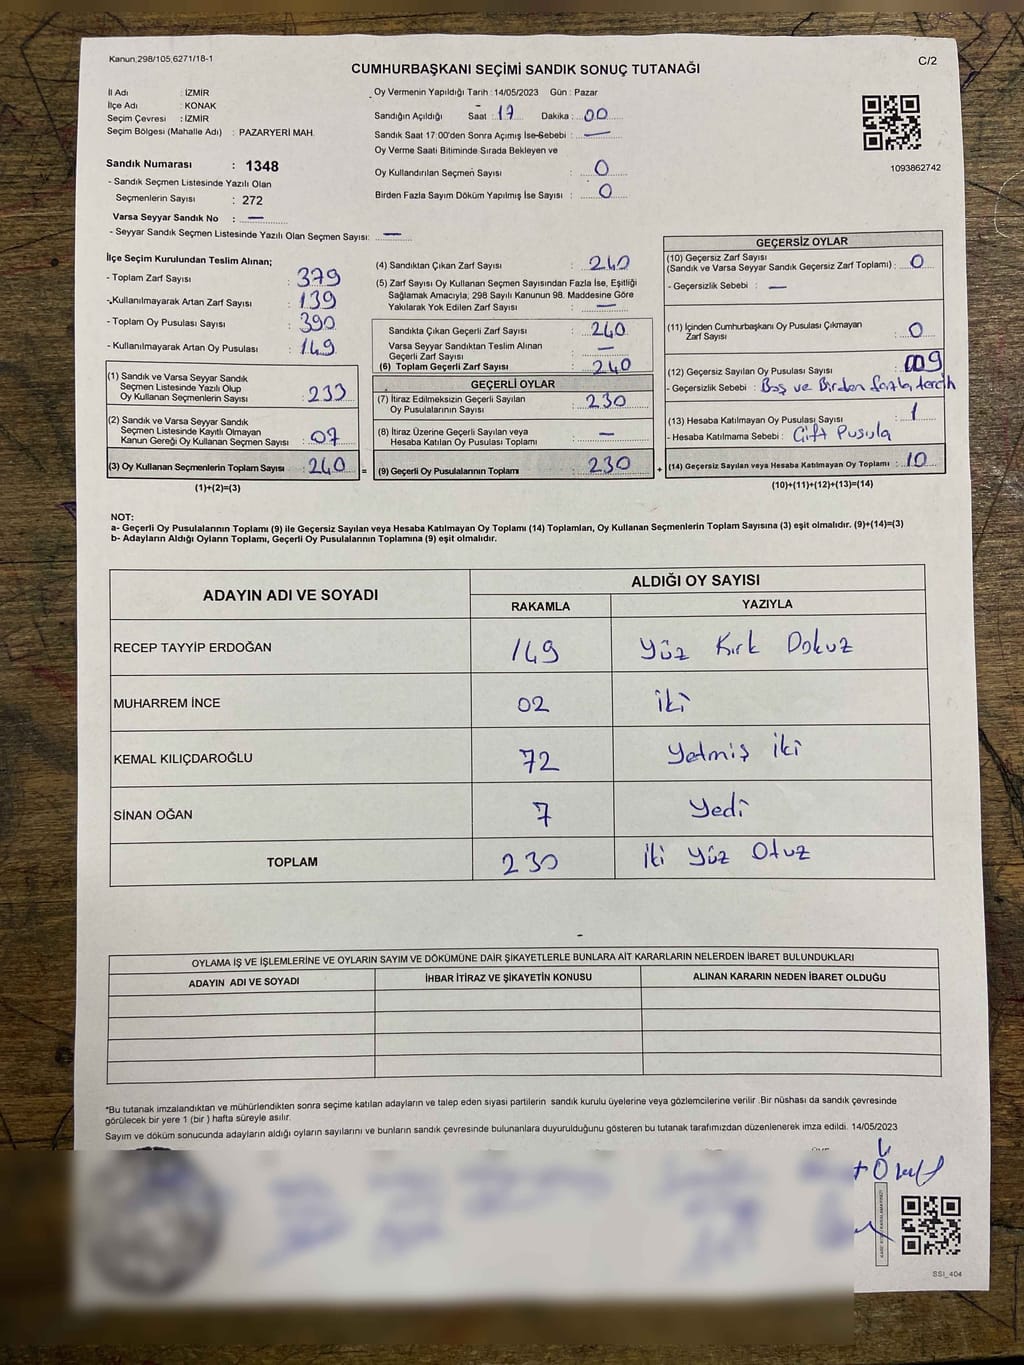 Kanun:298/105,6271/18-1
C/2
CUMHURBAŞKANI SEÇİMİ SANDIK SONUÇ TUTANAĞI
İl Adı : İZMİR
İlçe Adı : KONAK
Seçim Çevresi : İZMİR
Seçim Bölgesi (Mahalle Adı) : PAZARYERİ MAH.
Sandık Numarası : 1348
- Sandık Seçmen Listesinde Yazılı Olan
Seçmenlerin Sayısı : 272
Varsa Seyyar Sandık No : —
- Seyyar Sandık Seçmen Listesinde Yazılı Olan Seçmen Sayısı: —
Oy Vermenin Yapıldığı Tarih : 14/05/2023 Gün : Pazar
Sandığın Açıldığı Saat : 17 Dakika : 00
Sandık Saat 17:00'den Sonra Açımış İse Sebebi : —
Oy Verme Saati Bitiminde Sırada Bekleyen ve
Oy Kullandırılan Seçmen Sayısı : 0
Birden Fazla Sayım Döküm Yapılmış İse Sayısı : 0
1093862742
İlçe Seçim Kurulundan Teslim Alınan;
- Toplam Zarf Sayısı : 379
- Kullanılmayarak Artan Zarf Sayısı : 139
- Toplam Oy Pusulası Sayısı : 390
- Kullanılmayarak Artan Oy Pusulası : 149
(1) Sandık ve Varsa Seyyar Sandık
Seçmen Listesinde Yazılı Olup
Oy Kullanan Seçmenlerin Sayısı : 233
(2) Sandık ve Varsa Seyyar Sandık
Seçmen Listesinde Kayıtlı Olmayan
Kanun Gereği Oy Kullanan Seçmen Sayısı : 07
(3) Oy Kullanan Seçmenlerin Toplam Sayısı : 240 =
(1)+(2)=(3)
(4) Sandıktan Çıkan Zarf Sayısı : 240
(5) Zarf Sayısı Oy Kullanan Seçmen Sayısından Fazla İse, Eşitliği
Sağlamak Amacıyla, 298 Sayılı Kanunun 98. Maddesine Göre
Yakılarak Yok Edilen Zarf Sayısı : —
Sandıkta Çıkan Geçerli Zarf Sayısı : 240
Varsa Seyyar Sandıktan Teslim Alınan
Geçerli Zarf Sayısı : —
(6) Toplam Geçerli Zarf Sayısı : 240
GEÇERLİ OYLAR
(7) İtiraz Edilmeksizin Geçerli Sayılan
Oy Pusulalarının Sayısı : 230
(8) İtiraz Üzerine Geçerli Sayılan veya
Hesaba Katılan Oy Pusulası Toplamı : —
(9) Geçerli Oy Pusulalarının Toplamı : 230 +
GEÇERSİZ OYLAR
(10) Geçersiz Zarf Sayısı
(Sandık ve Varsa Seyyar Sandık Geçersiz Zarf Toplamı) : 0
- Geçersizlik Sebebi : —
(11) İçinden Cumhurbaşkanı Oy Pusulası Çıkmayan
Zarf Sayısı : 0
(12) Geçersiz Sayılan Oy Pusulası Sayısı : 009
- Geçersizlik Sebebi : Boş ve Birden fazla tercih
(13) Hesaba Katılmayan Oy Pusulası Sayısı : 1
- Hesaba Katılmama Sebebi : Çift Pusula
(14) Geçersiz Sayılan veya Hesaba Katılmayan Oy Toplamı : 10
(10)+(11)+(12)+(13)=(14)
NOT:
a- Geçerli Oy Pusulalarının Toplamı (9) ile Geçersiz Sayılan veya Hesaba Katılmayan Oy Toplamı (14) Toplamları, Oy Kullanan Seçmenlerin Toplam Sayısına (3) eşit olmalıdır. (9)+(14)=(3)
b- Adayların Aldığı Oyların Toplamı, Geçerli Oy Pusulalarının Toplamına (9) eşit olmalıdır.
ADAYIN ADI VE SOYADI
ALDIĞI OY SAYISI
RAKAMLA YAZIYLA
RECEP TAYYİP ERDOĞAN 149 Yüz Kırk Dokuz
MUHARREM İNCE 02 İki
KEMAL KILIÇDAROĞLU 72 Yetmiş İki
SİNAN OĞAN 7 Yedi
TOPLAM 230 İki Yüz Otuz
OYLAMA İŞ VE İŞLEMLERİNE VE OYLARIN SAYIM VE DÖKÜMÜNE DAİR ŞİKAYETLERLE BUNLARA AİT KARARLARIN NELERDEN İBARET BULUNDUKLARI
ADAYIN ADI VE SOYADI İHBAR İTİRAZ VE ŞİKAYETİN KONUSU ALINAN KARARIN NEDEN İBARET OLDUĞU
*Bu tutanak imzalandıktan ve mühürlendikten sonra seçime katılan adayların ve talep eden siyasi partilerin sandık kurulu üyelerine veya gözlemcilerine verilir .Bir nüshası da sandık çevresinde
görülecek bir yere 1 (bir ) hafta süreyle asılır.
Sayım ve döküm sonucunda adayların aldığı oyların sayılarını ve bunların sandık çevresinde bulunanlara duyurulduğunu gösteren bu tutanak tarafımızdan düzenlenerek imza edildi. 14/05/2023
SSI_404